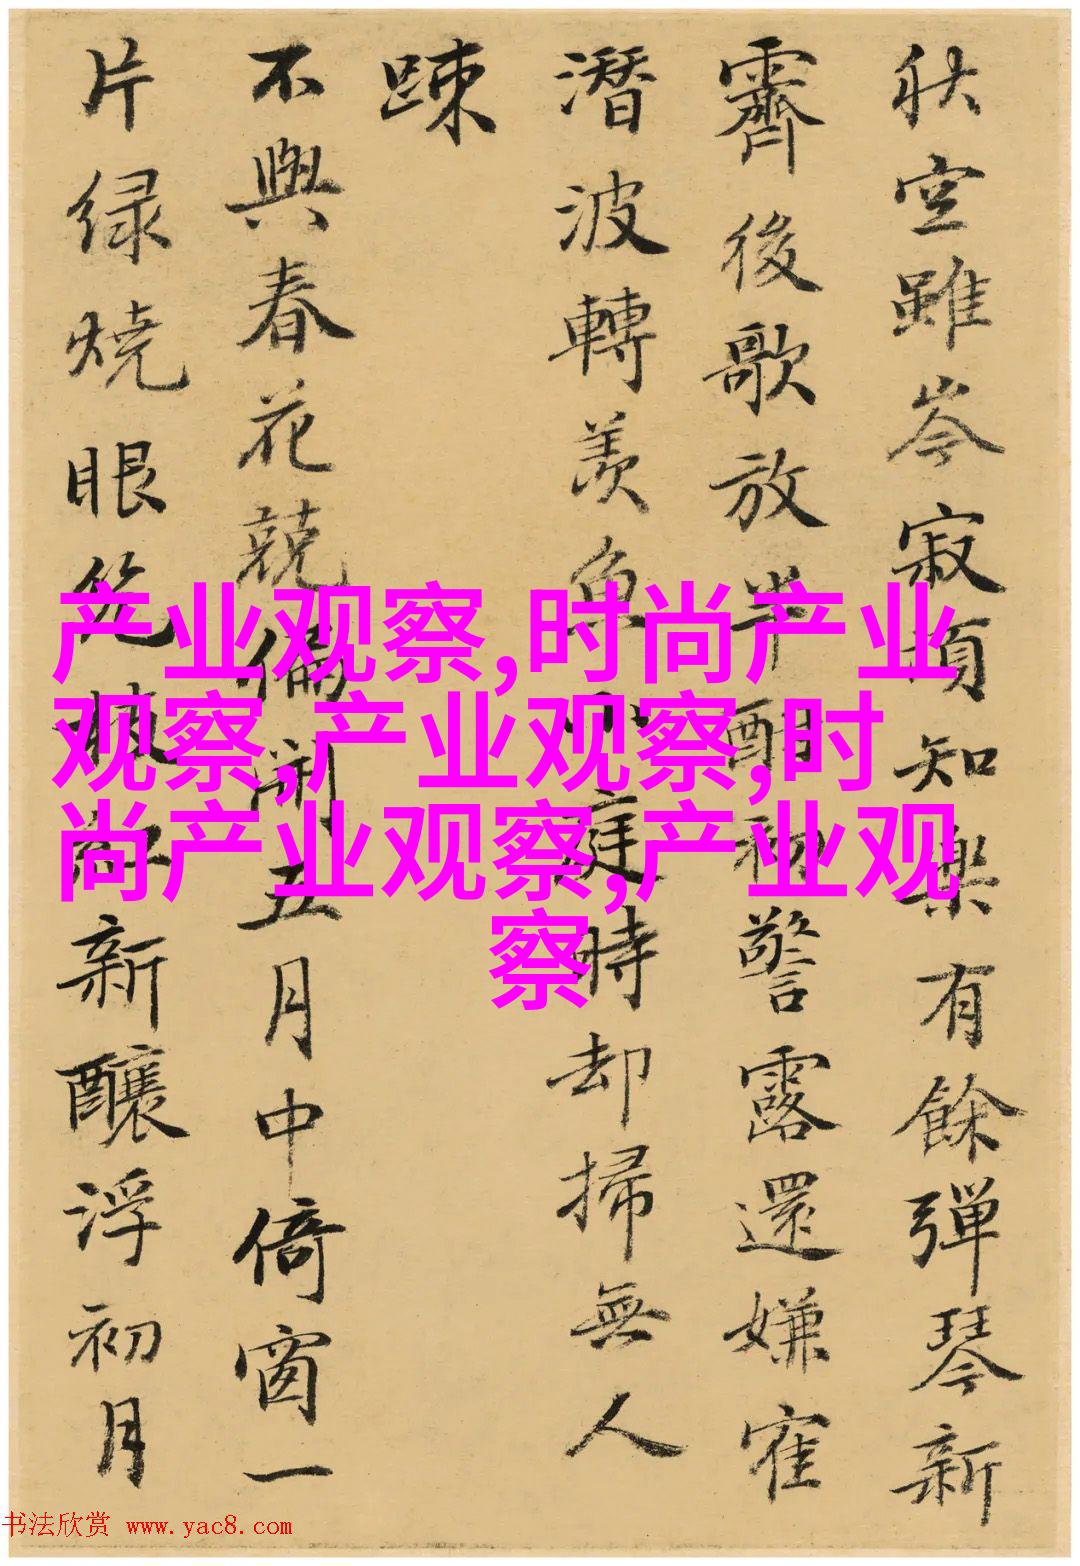 秋空雖岑寂須知樂有餘彈琴新
霽後歌放半酣初警露還嫌寉
潛波轉羨魚小庭時却掃無人
踈
不與春花競偏開五月中倚窗一
片绿燒眼枝红新釀浮初月
产业观察,时尚产业
观察,产业观察,时
尚产业观察,产业观
察
书法欣赏 www.yac8.com